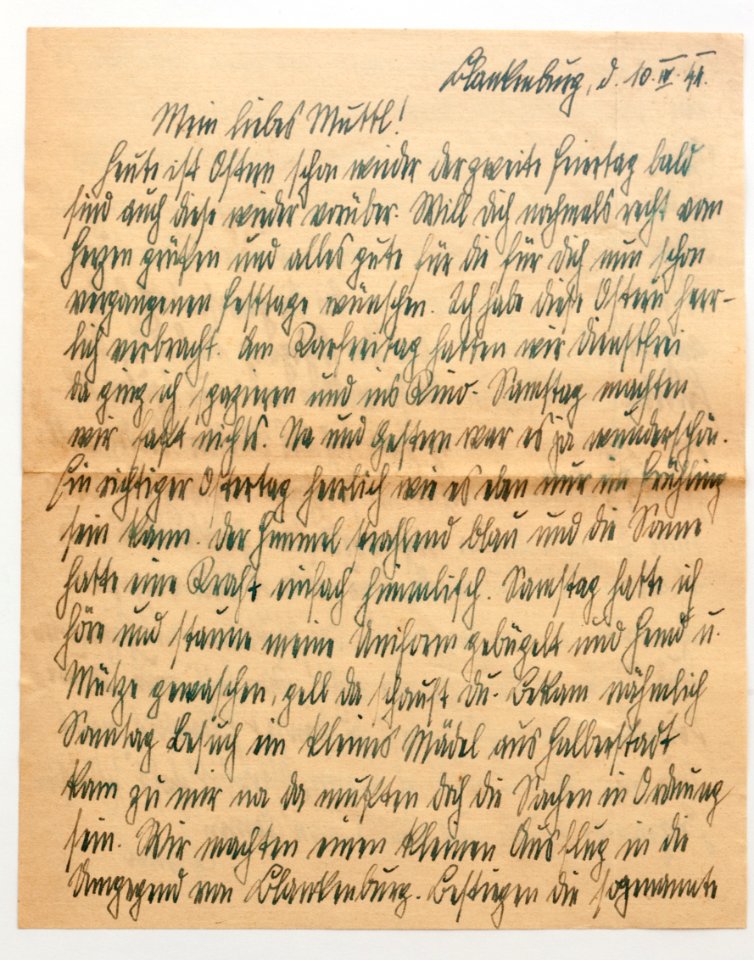 Blankenburg, d. 10. IV. 41.
Mein liebes Muttl!
Heute ist Ostern schon wieder der zweite Feiertag bald
sind auch diese wieder vorüber. Will dich nochmals recht vom
Herzen grüßen und alles gute für die für dich nun schon
vergangenen Festtage wünschen. Ich habe diese Ostern herr-
lich verbracht. Am Karfreitag hatten wir dienstfrei
da ging ich spazieren und ins Kino. Samstag machten
wir fast nichts. Na und Gestern war es ja wunderschön.
Ein richtiger Ostertag herrlich wie es eben nur im Frühling
sein kann. Der Himmel strahlend blau und die Sonne
hatte eine Kraft einfach himmlisch. Samstag hatte ich
höre und staune meine Uniform gebügelt und Hemd u.
Mütze gewaschen, gell da schaust du. Bekam nähmlich
Sonntag Besuch ein kleines Mädel aus Halberstadt
kam zu mir na da mußten doch die Sachen in Ordnung
sein. Wir machten einen kleinen Ausflug in die
Umgegend von Blankenburg. Bestiegen die sogenannte